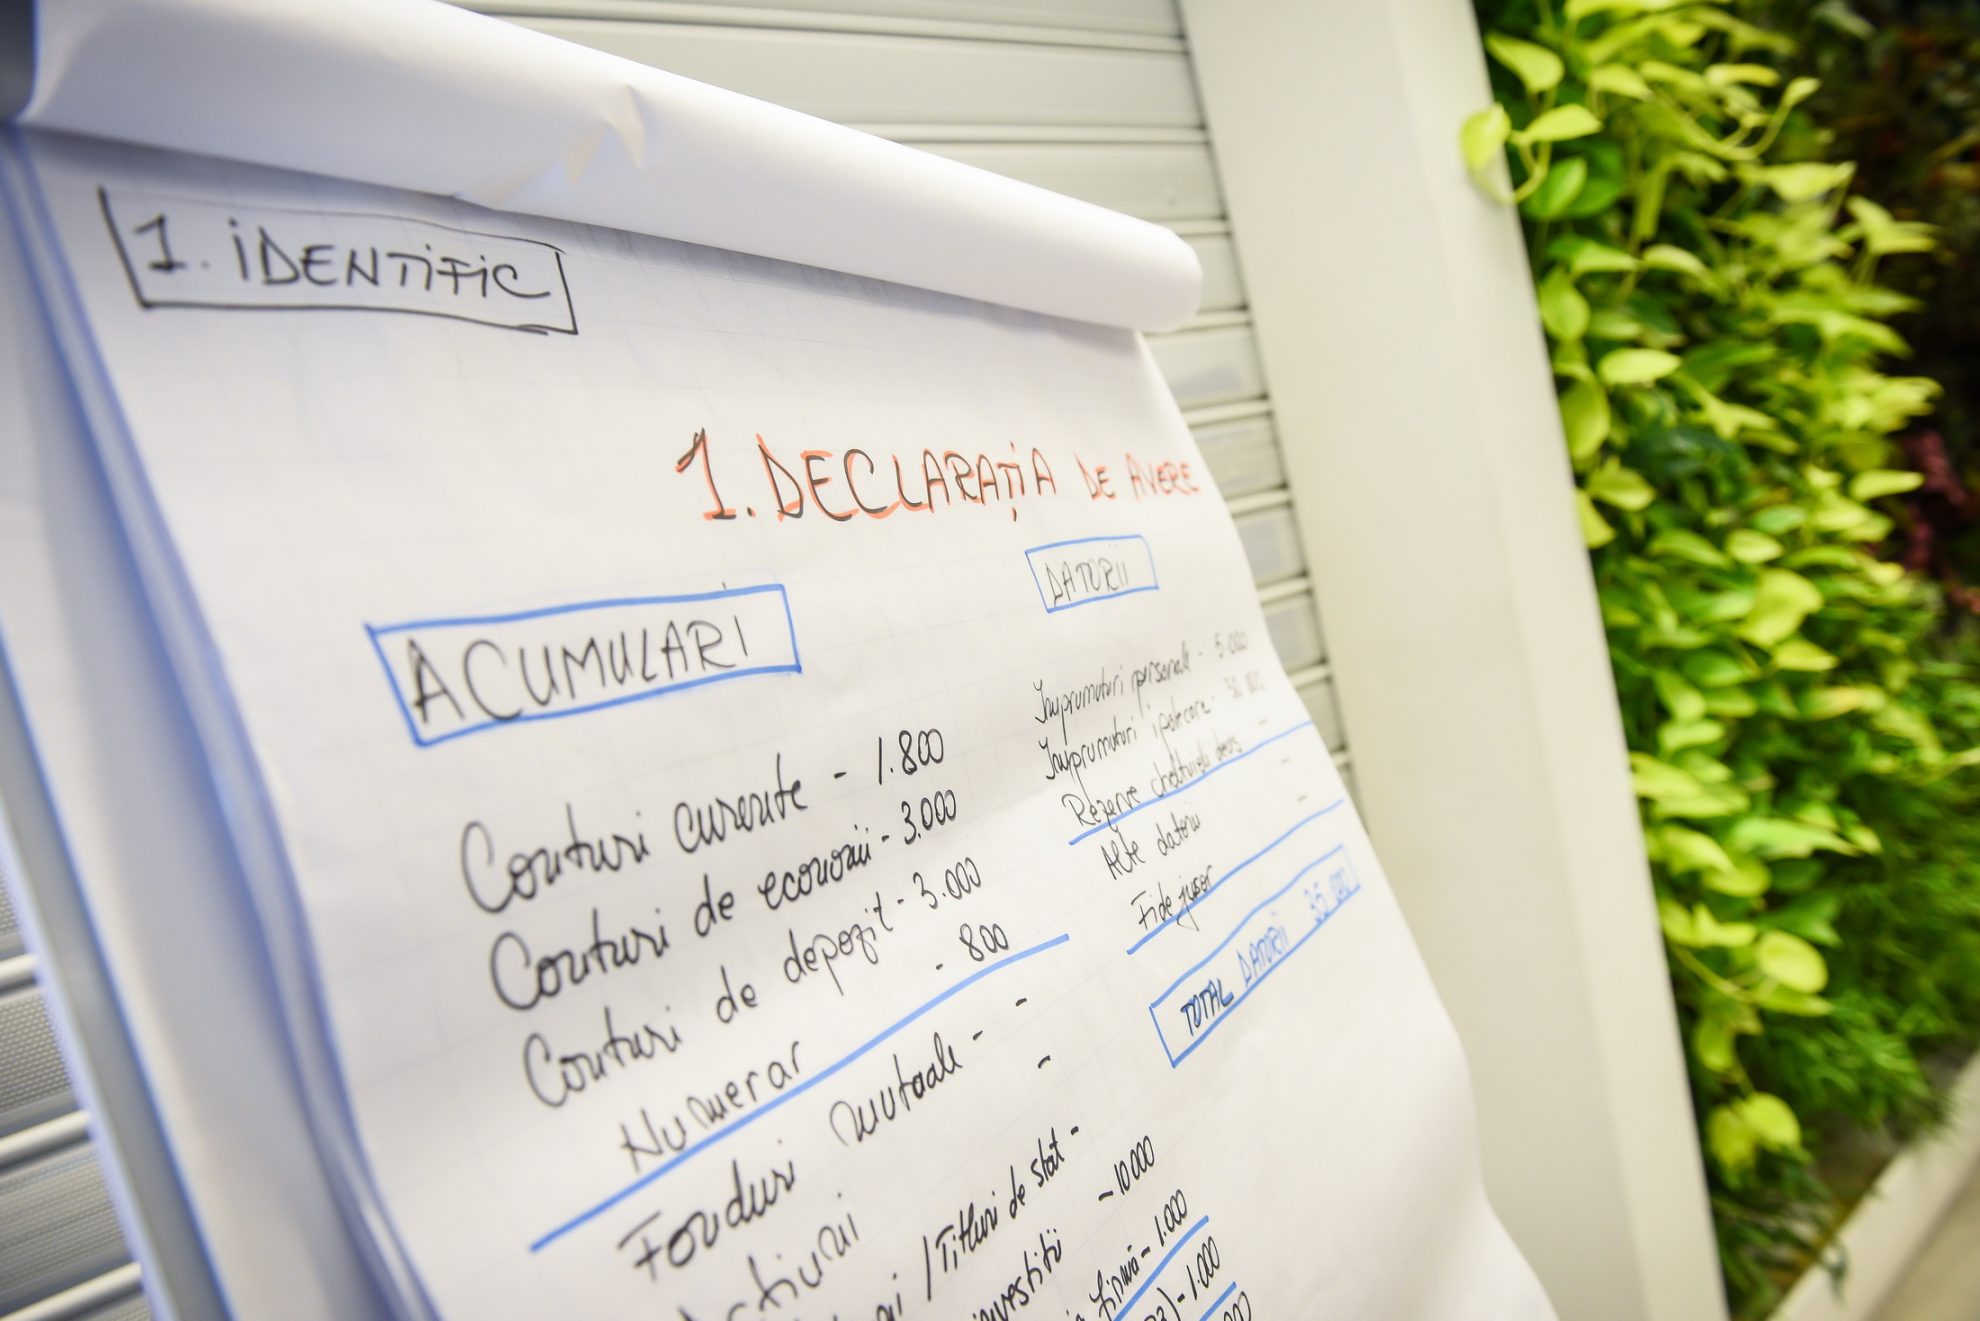 1. IDENTIFIC
1. DECLARAȚIA DE AVERE
ACUMULARI
Conturi curente - 1.800
Conturi de economii - 3.000
Conturi de depozit - 3.000
Numerar - 800
Fonduri mutuale - -
-
/Titluri de stat -
investiții - 10000
firmă - 1.000
- 1.000
DATORII
Imprumuturi personale - 5.000
Imprumuturi ipotecare -
Rezerve cheltuieli -
Alte datorii -
Fidejusor -
TOTAL DATORII 35.000